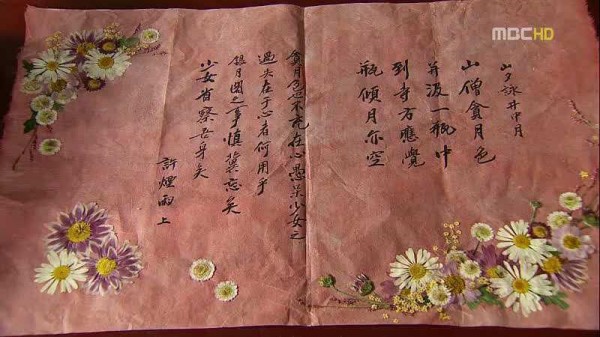 MBC HD
山夕詠井中月
山僧貪月色
并汲一瓶中
到寺方應覺
瓶傾月亦空
貪月色不充在心愚少女之
過失在于心者何用乎
銀月圓之事慎冀忘矣
少女省察吾身矣
許煙雨 上